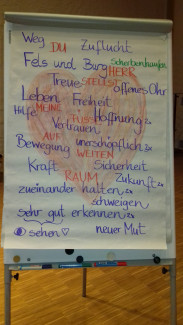 Weg DU Zuflucht
Fels und Burg HERR Scherbenhaufen
Treue STELLST offenes Ohr
Leben Freiheit
Hilfe MEINE Hoffnung 2x
Vertrauen FÜSSE
Bewegung AUF unerschöpflich 2x
WEITEN
Kraft Sicherheit
RAUM Zukunft 2x
zueinander halten 2x
schweigen
sehr gut erkennen 2x
sehen neuer Mut